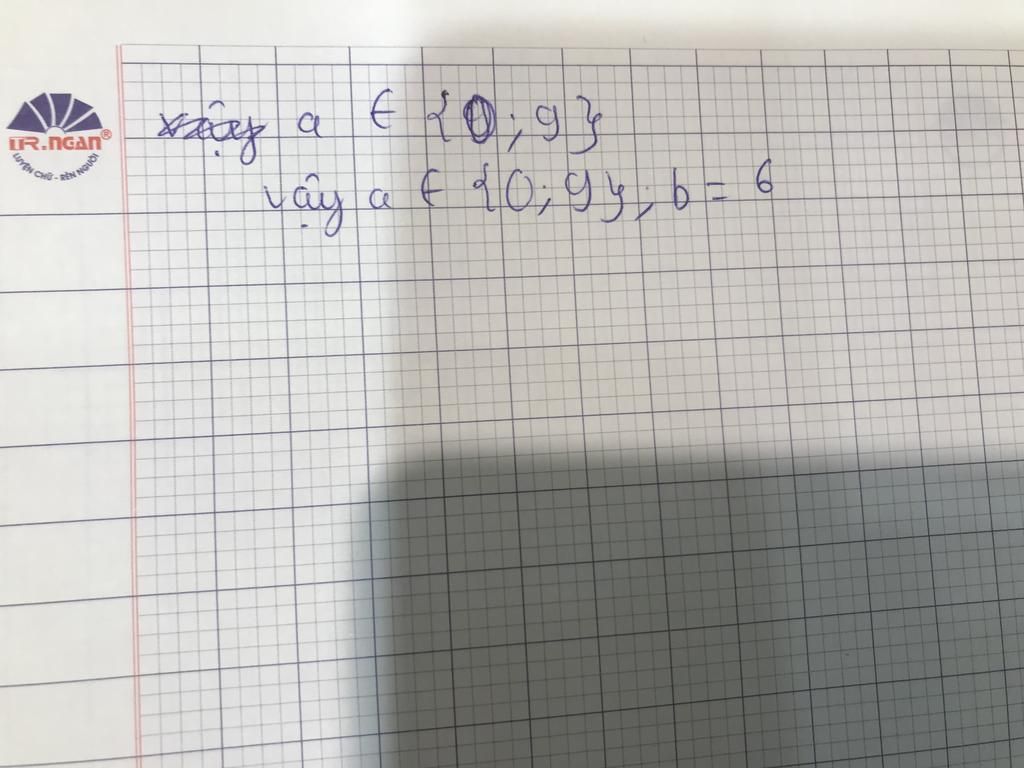 MR.NGAN®
LUYỆN CHỮ - RÈN NGƯỜI
a ∈ {0; 9}
vậy a ∈ {0; 9}; b = 6